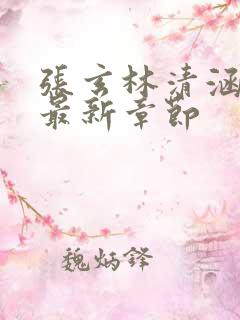 張玄林清涵
最新章節
魏炳鋒